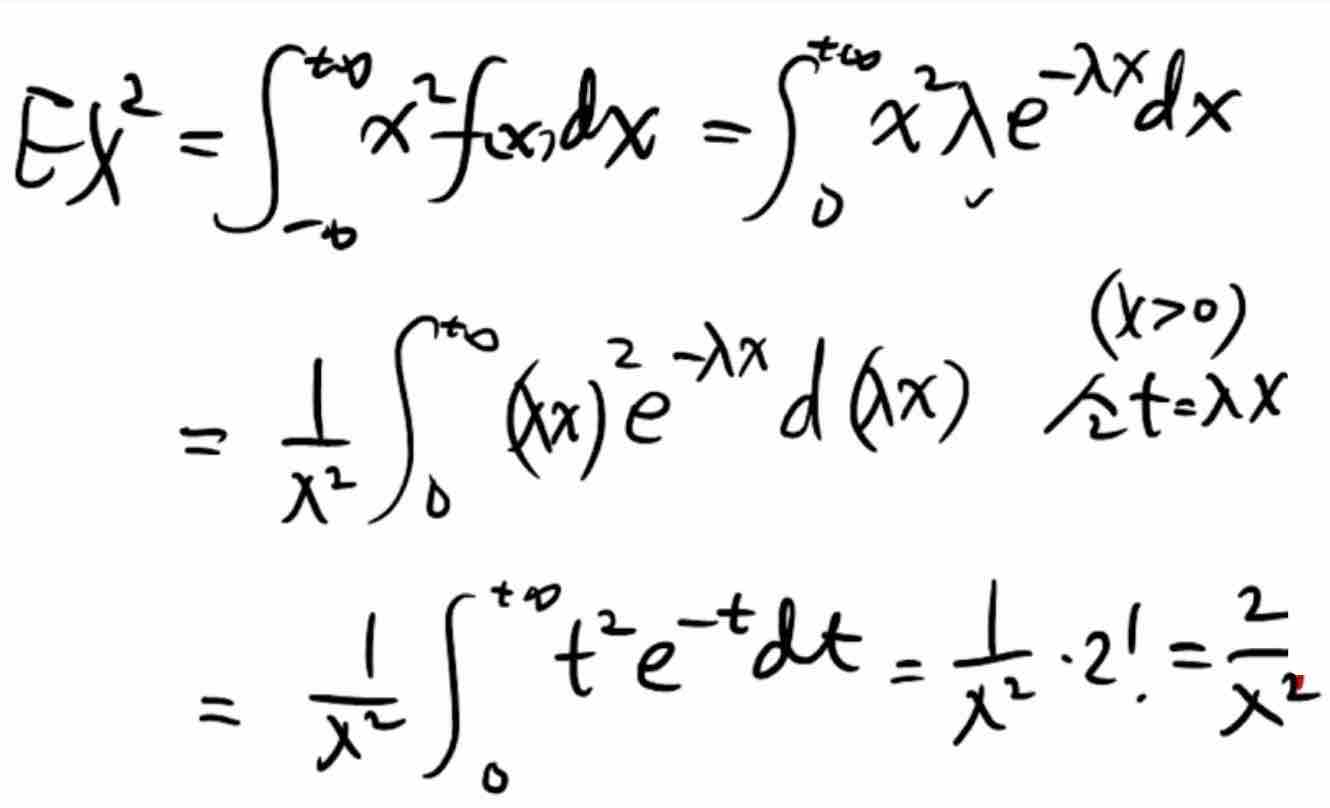 EX² = ∫_{-∞}^{+∞} x² f(x) dx = ∫_0^{+∞} x² λ e^{-λx} dx
(x>0)
= 1/λ² ∫_0^{+∞} (λx)² e^{-λx} d(λx) 令 t=λx
= 1/λ² ∫_0^{+∞} t² e^{-t} dt = 1/λ² · 2! = 2/λ²